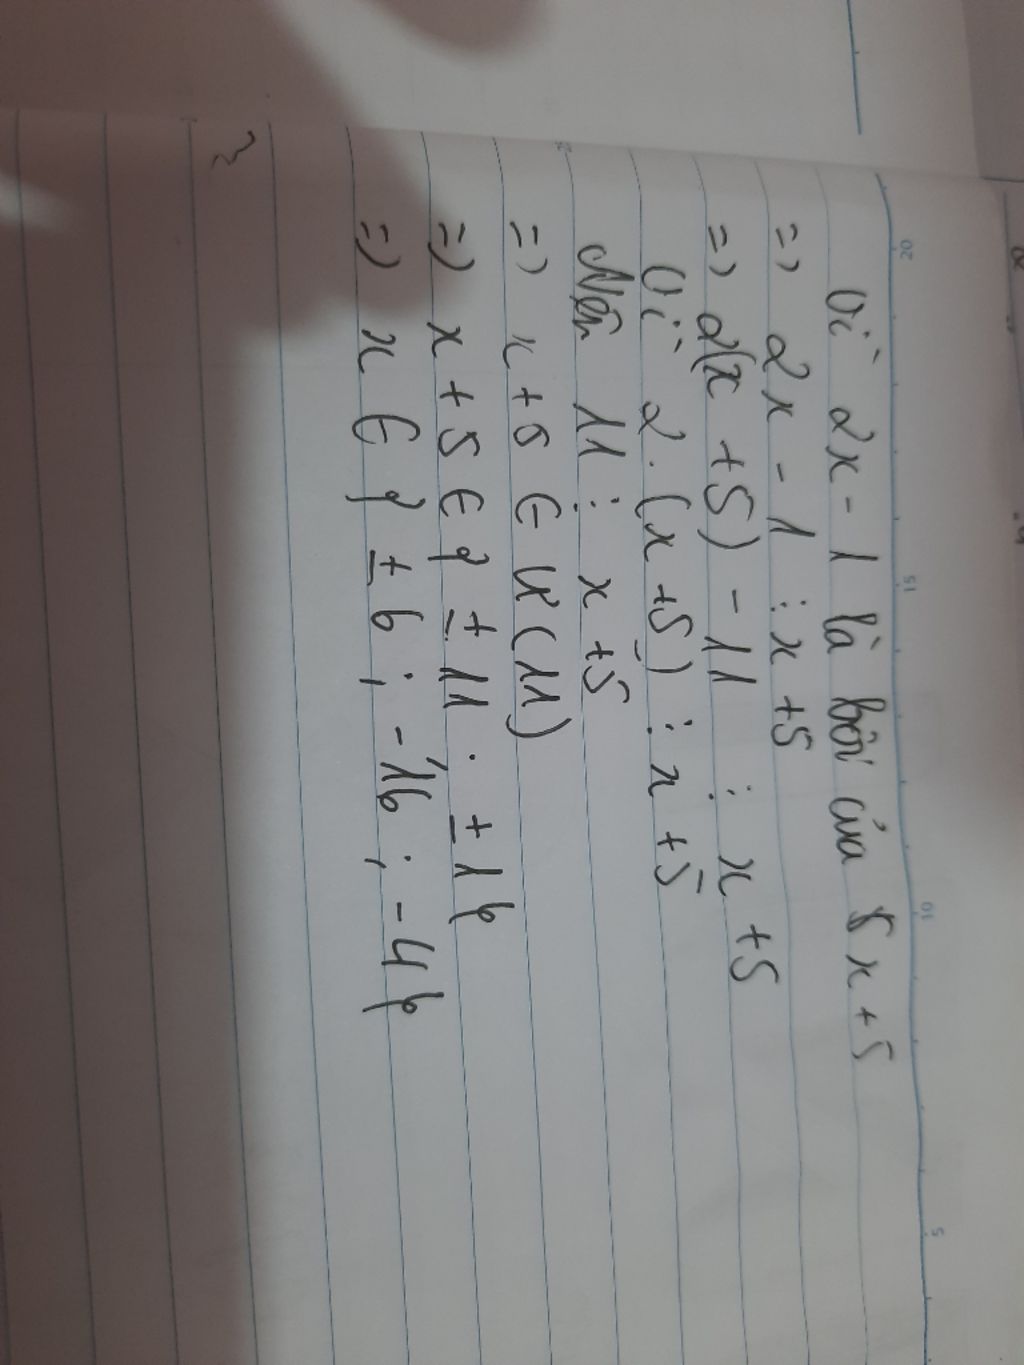 Vì 2x - 1 là bội của x + 5
=> 2x - 1 ⋮ x + 5
=> 2(x + 5) - 11 ⋮ x + 5
Vì 2.(x + 5) ⋮ x + 5
Nên 11 ⋮ x + 5
=> x + 5 ∈ Ư(11)
=> x + 5 ∈ { ± 11 . ± 1 }
=> x ∈ { ± 6 ; - 16 ; - 4 }
20
15
10
5